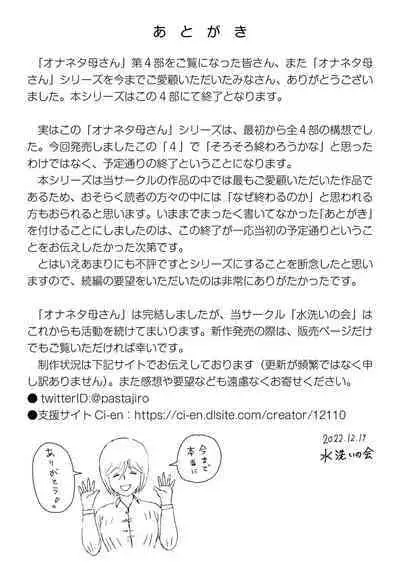 あとがき
「オナネタ母さん」第４部をご覧になった皆さん、また「オナネタ母
さん」シリーズを今までご愛顧いただいたみなさん、ありがとうござい
ました。本シリーズはこの４部にて終了となります。
実はこの「オナネタ母さん」シリーズは、最初から全４部の構想でし
た。今回発売しましたこの「４」で「そろそろ終わろうかな」と思った
わけではなく、予定通りの終了ということになります。
本シリーズは当サークルの作品の中では最もご愛顧いただいた作品で
あるため、おそらく読者の方々の中には「なぜ終わるのか」と思われる
方もおられると思います。いままでまったく書いてなかった「あとがき」
を付けることにしましたのは、この終了が一応当初の予定通りというこ
とをお伝えしたかった次第です。
とはいえあまりにも不評ですとシリーズにすることを断念したと思い
ますので、続編の要望をいただいたのは非常にありがたかったです。
「オナネタ母さん」は完結しましたが、当サークル「水洗いの会」は
これからも活動を続けてまいります。新作発売の際は、販売ページだけ
でもご覧いただければ幸いです。
制作状況は下記サイトでお伝えしております（更新が頻繁ではなく申
し訳ありません）。また感想や要望なども遠慮なくお寄せください。
●twitterID:@pastajiro
●支援サイトCi-en：https://ci-en.dlsite.com/creator/12110
今まで
本当に
ありがとう
2022.12.17
水洗いの会